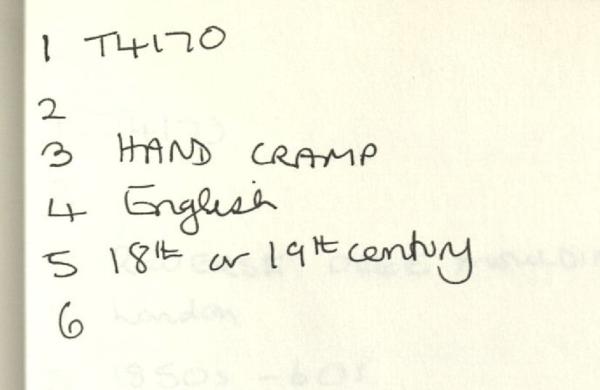 1 T4170
2
3 HAND CRAMP
4 English
5 18th or 19th century
6